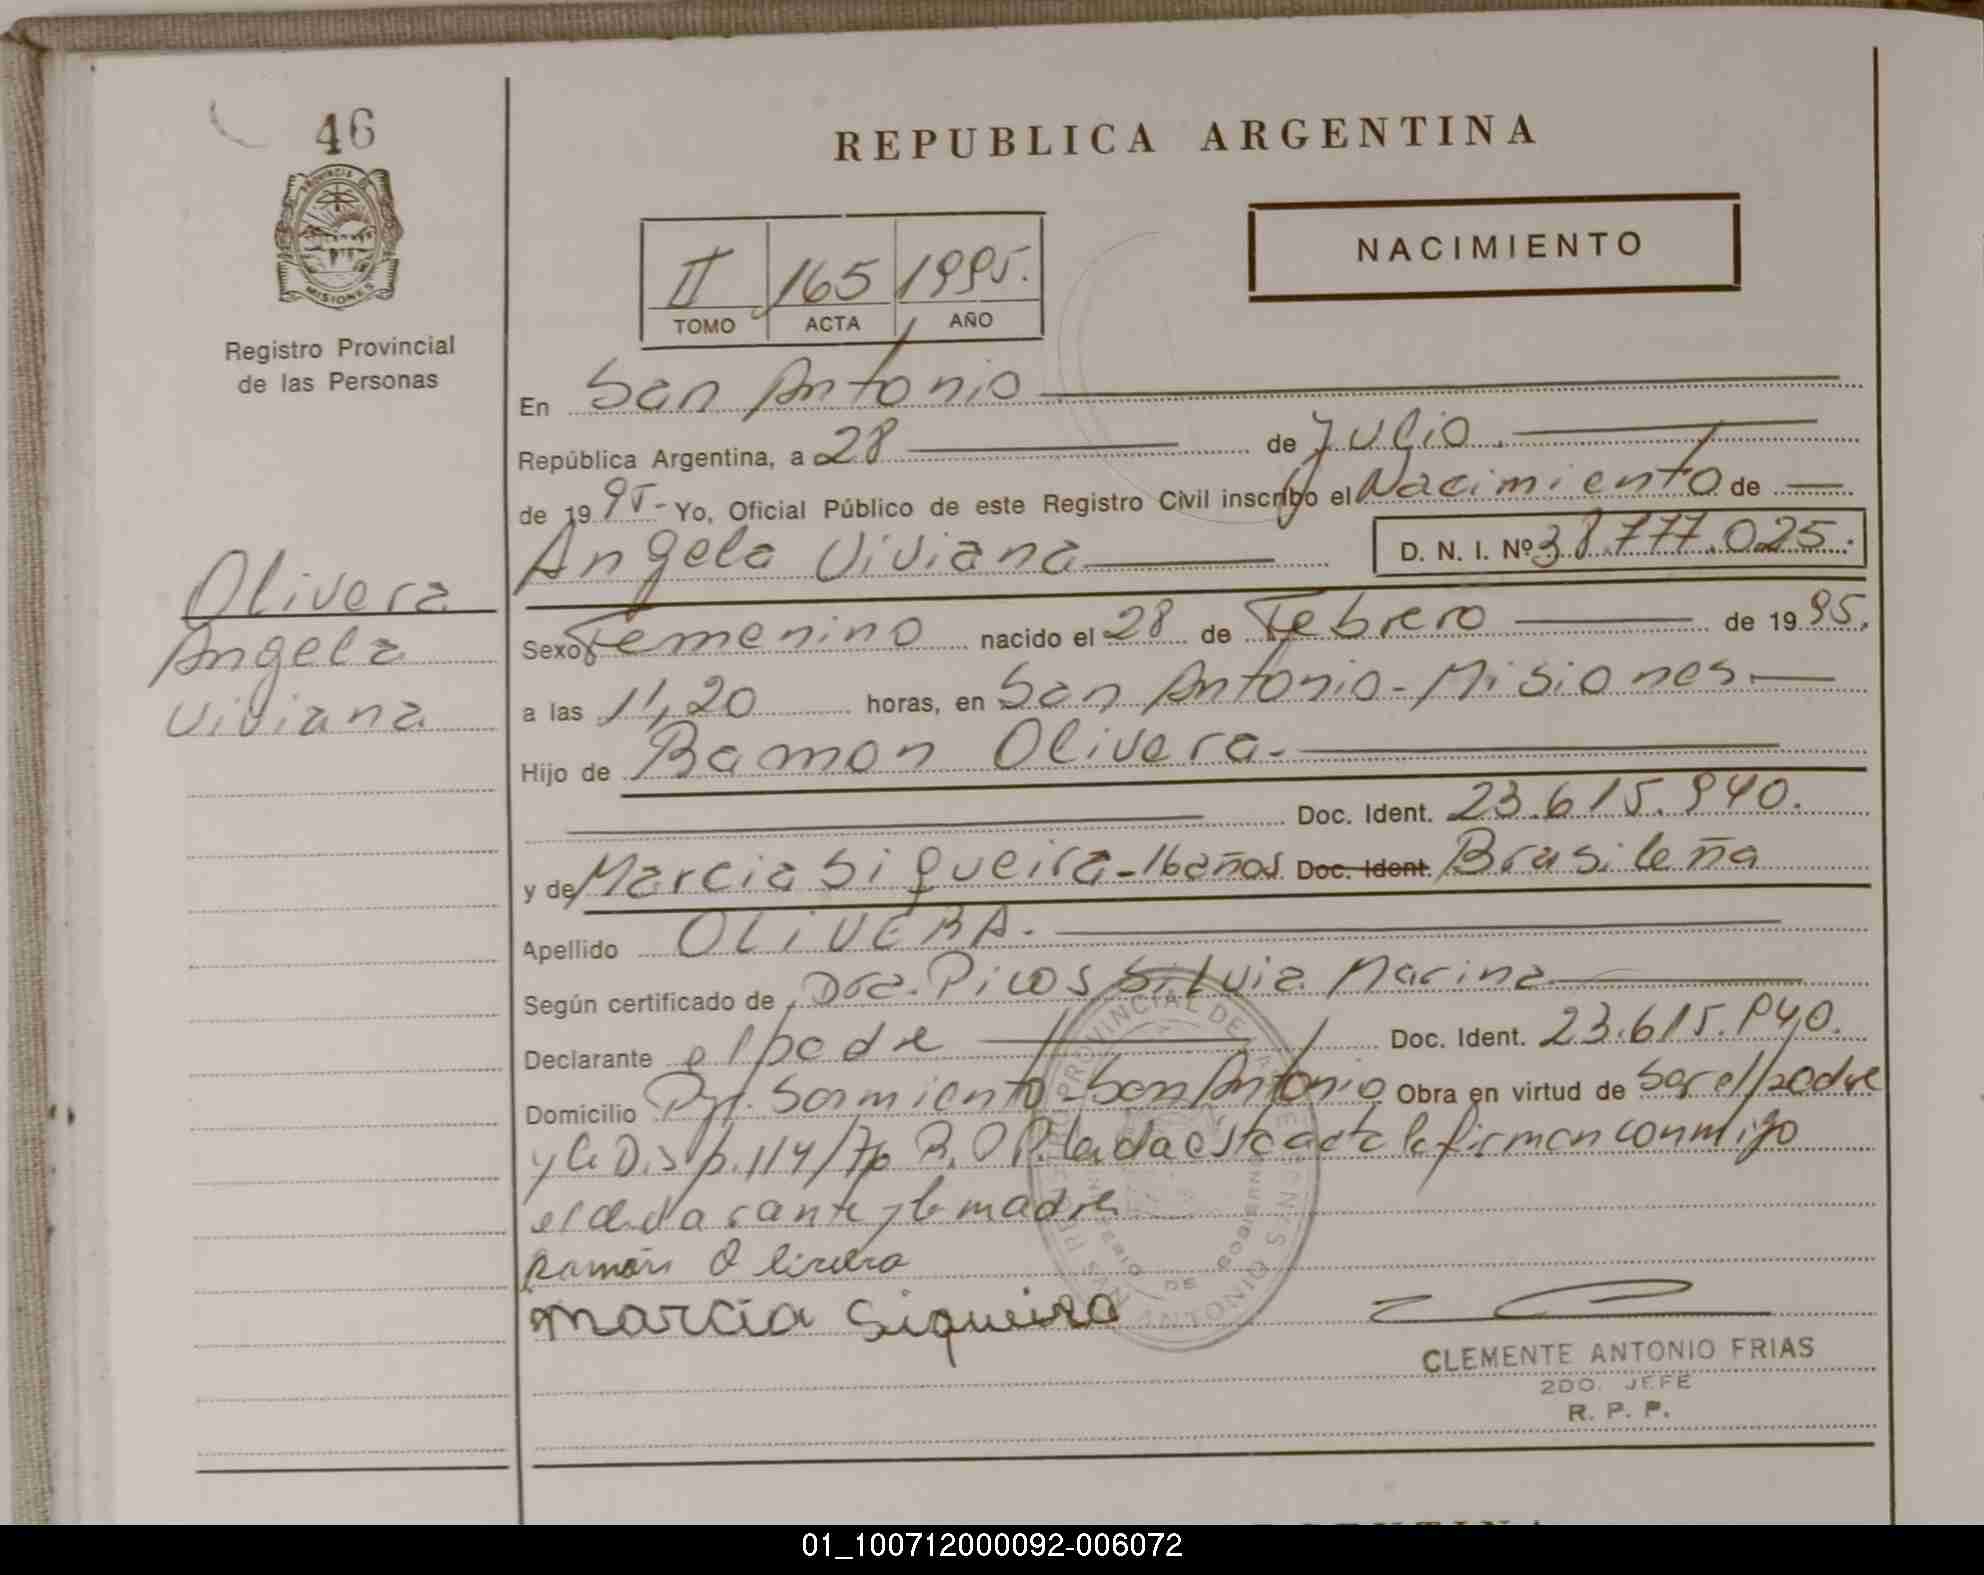 46
PROVINCIA DE
MISIONES
Registro Provincial
de las Personas
Olivera
Angela
Viviana
REPUBLICA ARGENTINA
NACIMIENTO
II 165 1995.
TOMO ACTA AÑO
En San Antonio
República Argentina, a 28 de Julio
de 1995- Yo, Oficial Público de este Registro Civil inscribo el Nacimiento de
Angela Viviana D. N. I. Nº 38.777.025.
Sexo Femenino nacido el 28 de Febrero de 1995.
a las 11,20 horas, en San Antonio-Misiones
Hijo de Ramon Olivera.
Doc. Ident. 23.615.940.
y de Marcia Siqueira-16 años. Doc. Ident. Brasileña
Apellido OLIVERA.
Según certificado de Dra. Picos Silvia Marina
Declarante el padre Doc. Ident. 23.615.940.
Domicilio Pje. Sarmiento-San Antonio Obra en virtud de ser el padre
y la Disp. 114/76 R.P.P. leida esta acta la firman conmigo
el declarante y la madre
Ramón Olivera
Marcia Siqueira
CLEMENTE ANTONIO FRIAS
2DO. JEFE
R. P. P.
01_100712000092-006072